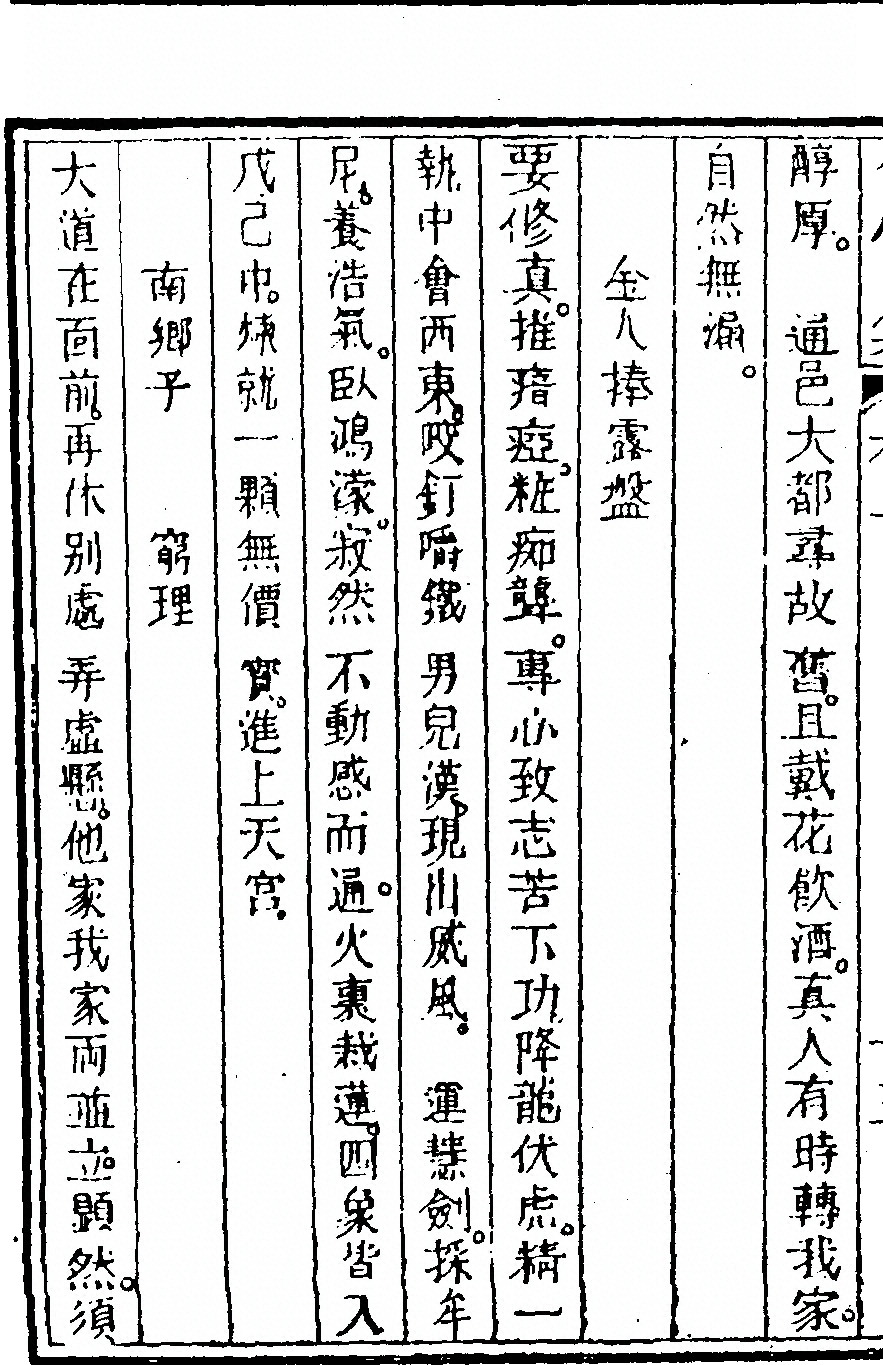 醇厚。　通邑大都尋故舊。且戴花飲酒。真人有時轉我家。
自然無漏。
金人捧露盤
要修真。推瘖瘂。粧痴聾。專心致志苦下功降龍伏虎。精一
執中會西東。咬釘嚼鐵男兒漢。現出威風。　運慧劍。採牟
尼。養浩氣。臥鴻濛。寂然不動感而通。火裏栽蓮。四象皆入
戊己中。煉就一顆無價寶。進上天宮。
南鄉子　　窮理
大道在面前。再休別處弄虛懸。他家我家両並立。顯然。須